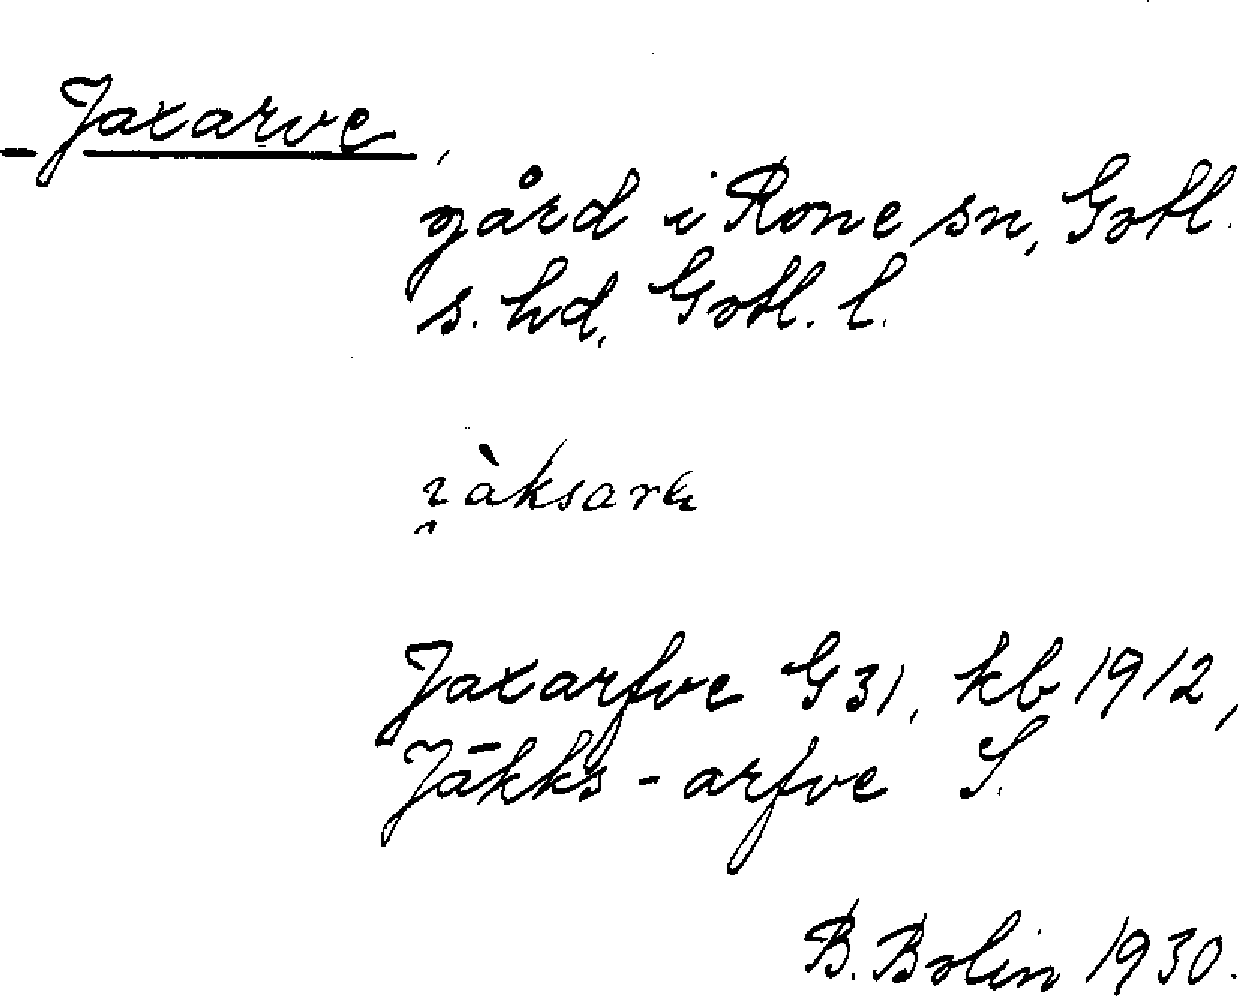 Jaxarve,
gård i Rone sn, Gotl.
s. hd, Gotl. l.
Jaxarfve G 31, kb 1912,
Jākks-arfve S.
B. Bolin 1930.